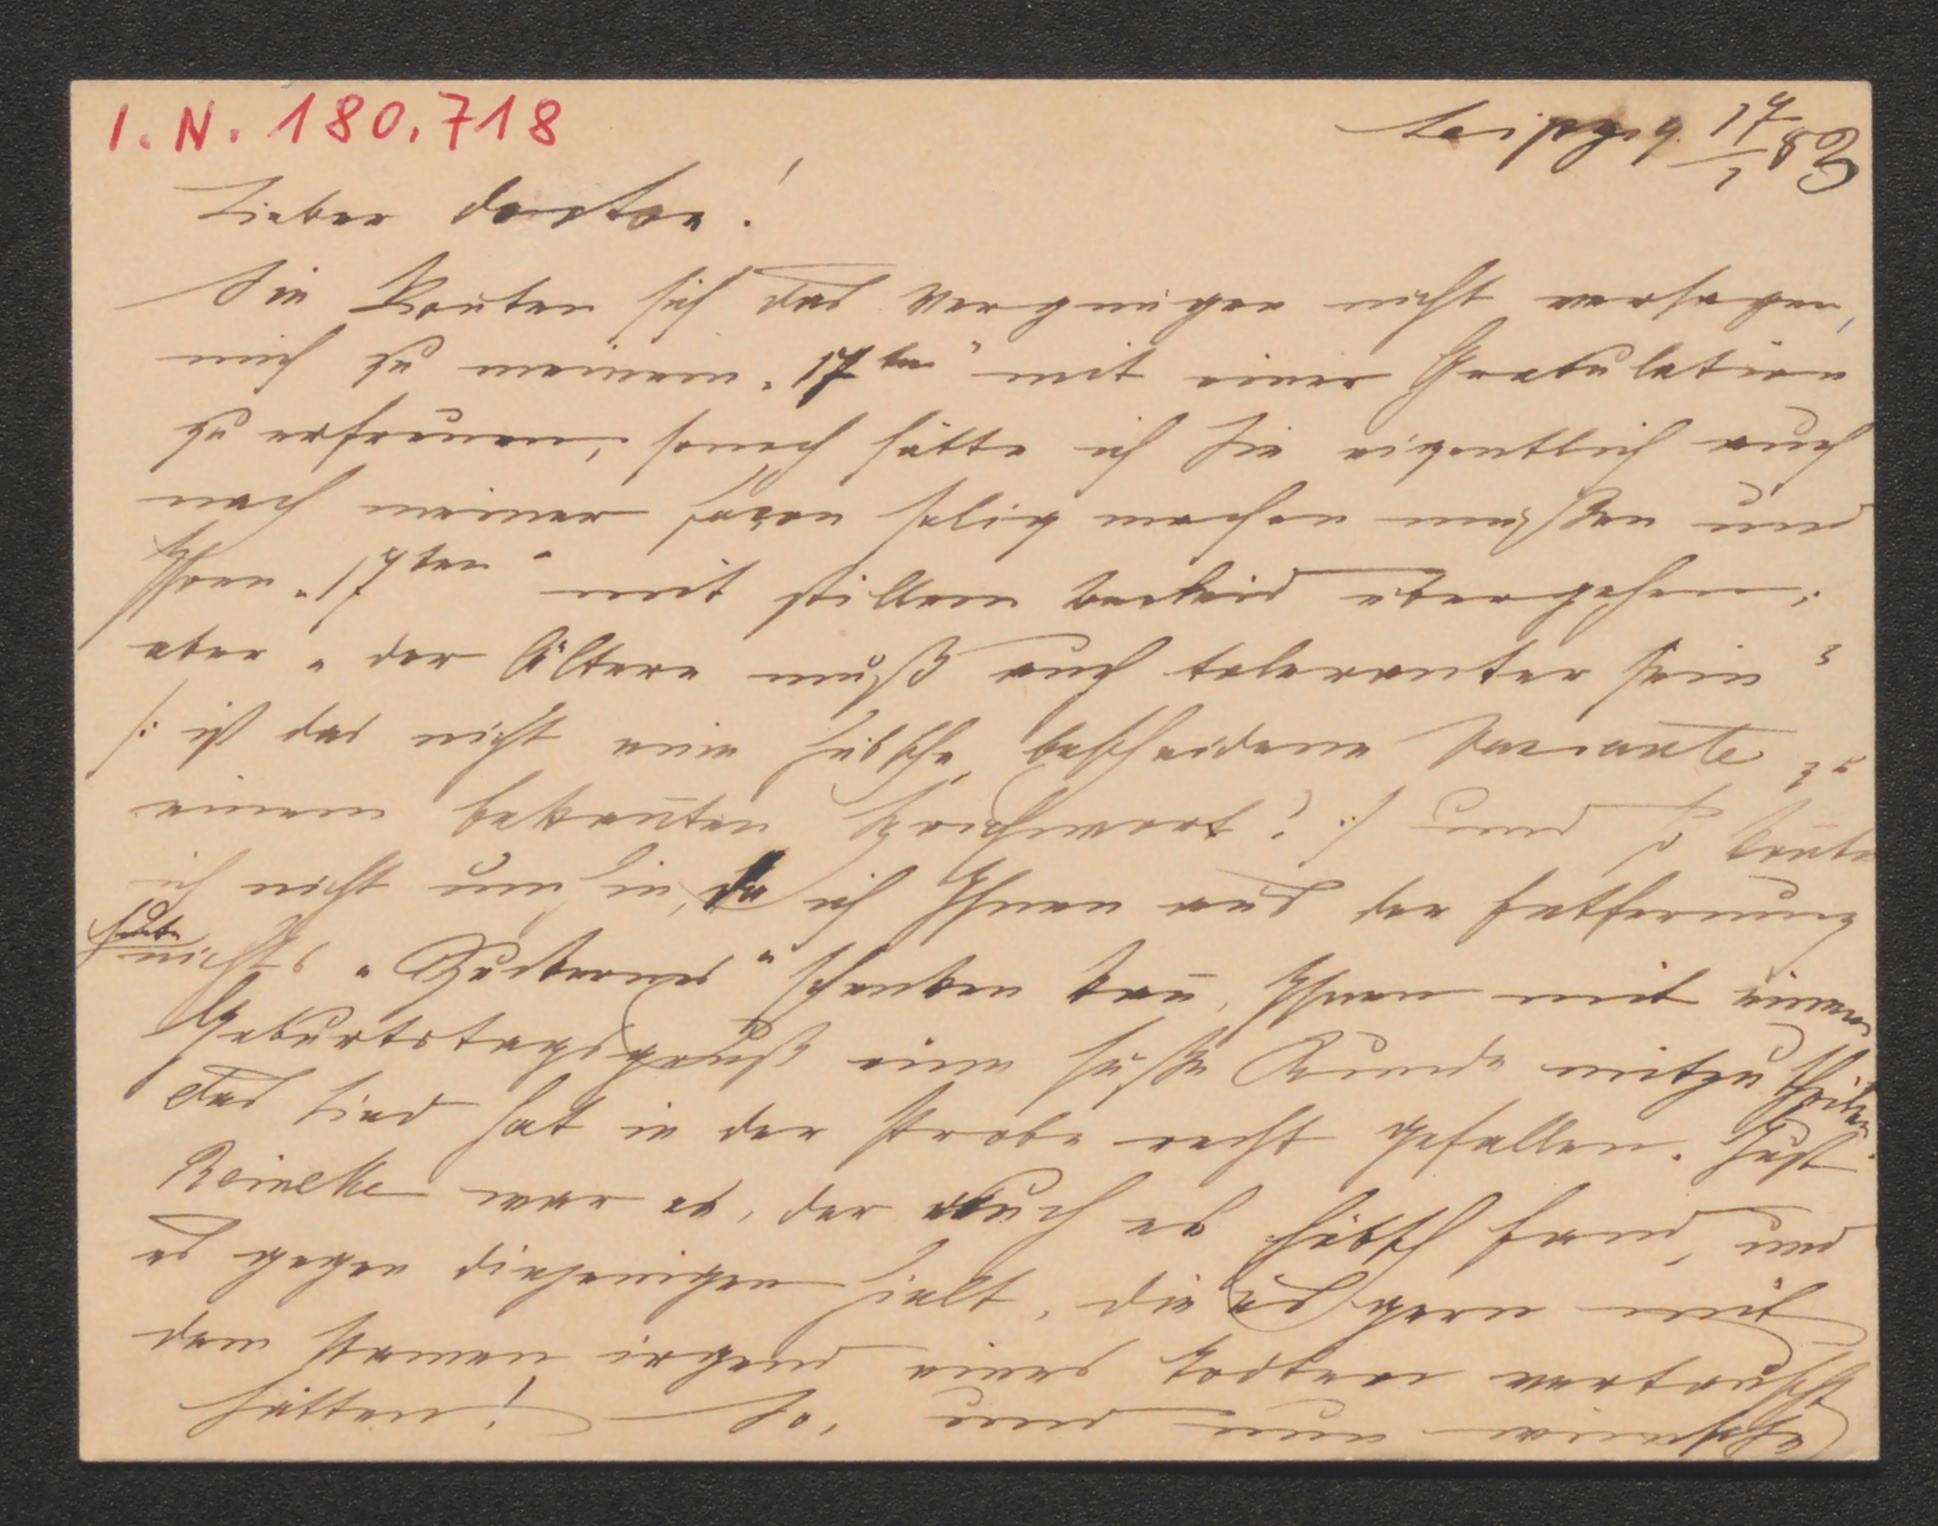 I. N. 180.718
Leipzig. 17/1 86
Lieber Doctor!
Sie konten sich das Vergnügen nicht versagen,
mich zu meinem „17ten" mit einer Gratulation
zu erfreuen, sonach hätte ich Sie eigentlich auch
nach meiner façon selig machen müßen und
Ihren „17ten" mit stillem Beileid übergehen;
aber „der Ältere muß auch toleranter sein"
/: ist das nicht eine hübsche, bescheidene Variante zu
einem bekañten Sprichwort? :/ und so koñte
ich nicht umhin, da ich Ihnen aus der Entfernung
heute
nichts „ " schenken kañ, Ihnen mit einem
Geburtstagsgruß eine süße Kunde mitzutheilen
Das Lied hat in der Probe recht gefallen. Just
Reinecke war es, der auch es hübsch fand, und
es gegen diejenigen hielt, die es gern mit
dem Namen irgend eines Todten vertauscht
hätten! – So, und nun wünsche